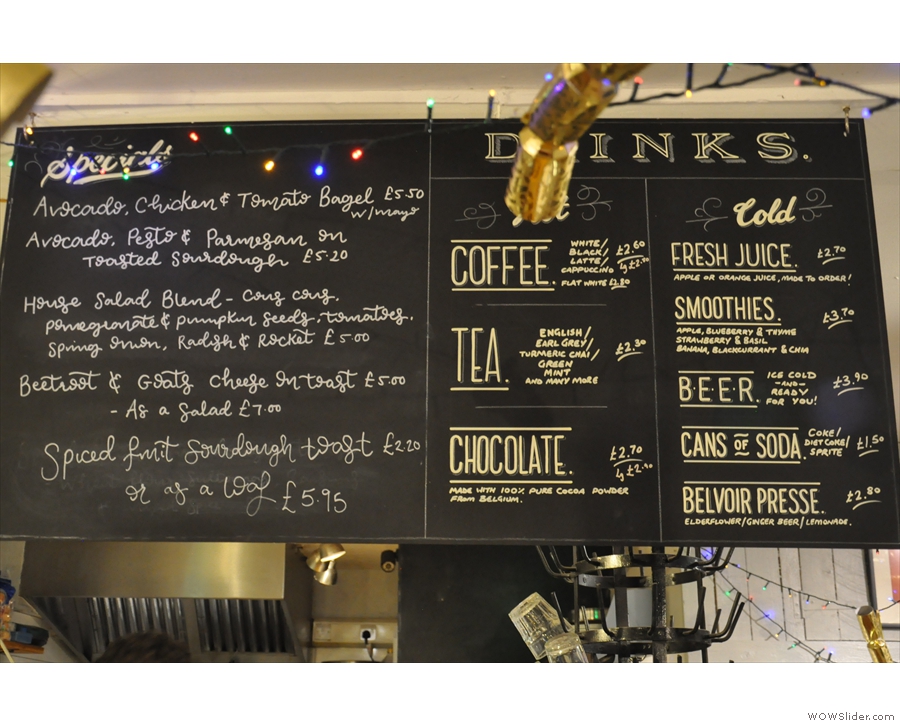 Specials
Avocado, Chicken & Tomato Bagel £5.50
w/mayo
Avocado, Pesto & Parmesan on
Toasted Sourdough £5.20
House Salad Blend - Cous cous,
pomegranate & pumpkin seeds, tomatoes,
Spring Onion, Radish & Rocket £5.00
Beetroot & Goats Cheese on toast £5.00
- As a Salad £7.00
Spiced fruit Sourdough toast £2.20
or as a loaf £5.95
DRINKS.
COFFEE.
WHITE/
BLACK/
LATTE/
CAPPUCCINO
£2.60
FLAT WHITE £2.80
TEA.
ENGLISH/
EARL GREY/
TURMERIC CHAI/
GREEN
MINT
AND MANY MORE
£2.30
CHOCOLATE.
£2.70
MADE WITH 100% PURE COCOA POWDER
FROM BELGIUM.
Cold
FRESH JUICE. £2.70
APPLE OR ORANGE JUICE, MADE TO ORDER!
SMOOTHIES. £3.70
APPLE, BLUEBERRY & THYME
STRAWBERRY & BASIL
BANANA, BLACKCURRANT & CHIA
BEER.
ICE COLD
-AND-
READY
FOR YOU!
£3.90
CANS OF SODA.
COKE/
DIET COKE/
SPRITE
£1.50
BELVOIR PRESSE. £2.80
ELDERFLOWER/GINGER BEER/LEMONADE.
WOWSlider.com